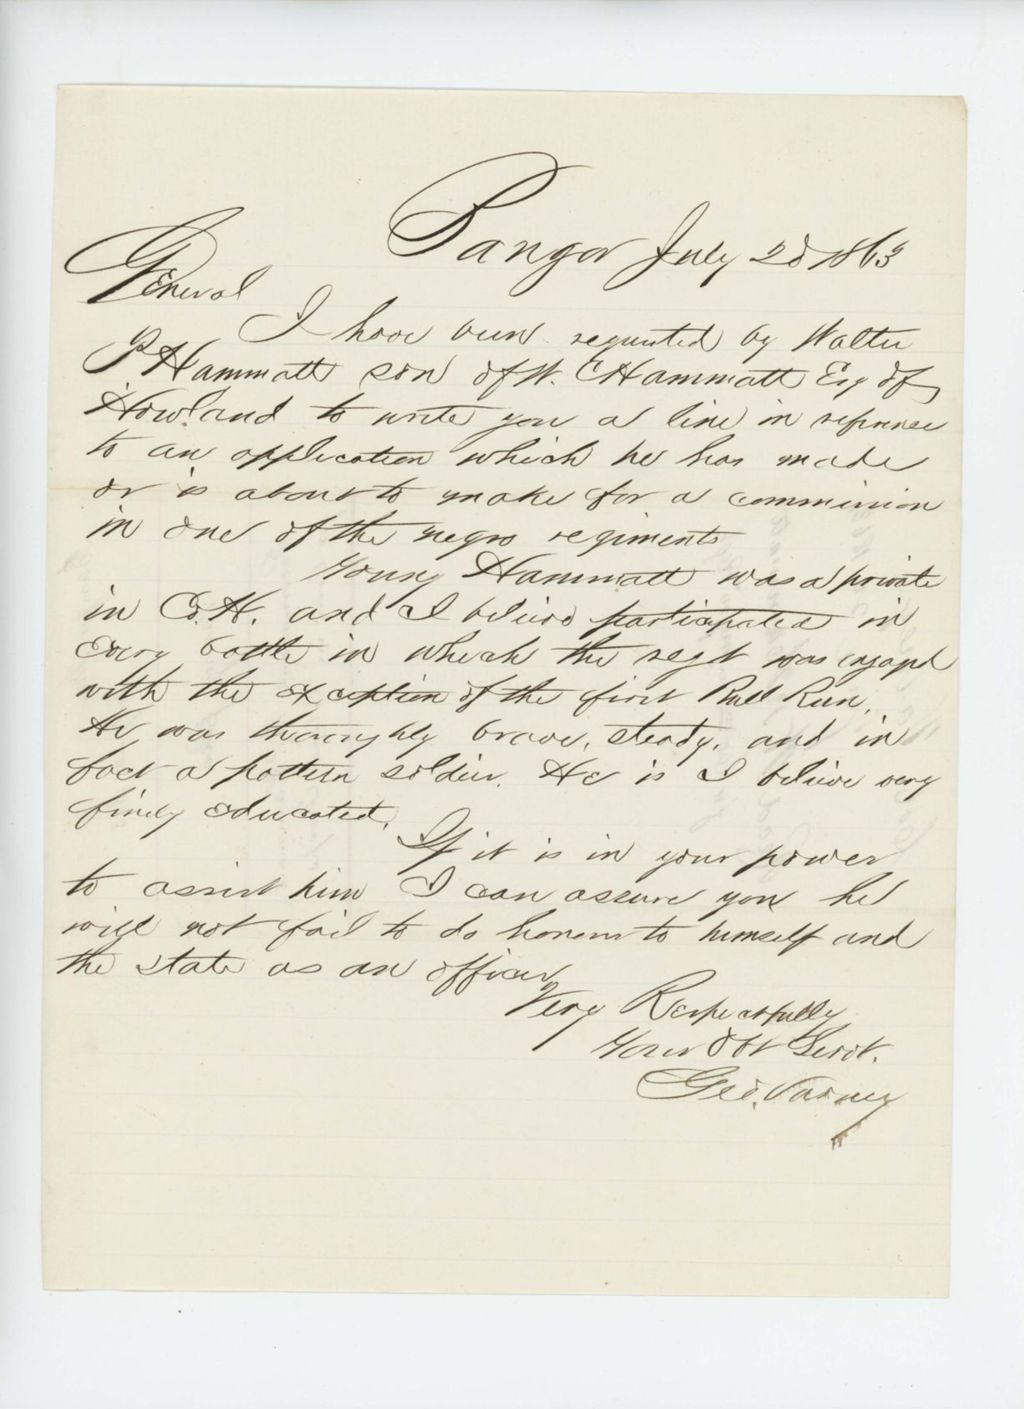 Bangor July 28 1863
General
I have been requested by Walter
P Hammatt son of W. C Hammatt Esq of
Howland to write you a line in reference
to an application which he has made
or is about to make for a commission
in one of the negro regiments
Young Hammatt was a private
in Co. H. and I believe participated in
every battle in which the regt was engaged
with the exception of the first Bull Run.
He was thoroughly brave, steady, and in
fact a pattern soldier. He is I believe very
finely educated.
If it is in your power
to assist him I can assure you he
will not fail to do honor to himself and
the state as an officer
Very Respectfully
Your Obt Servt.
Geo. Varney